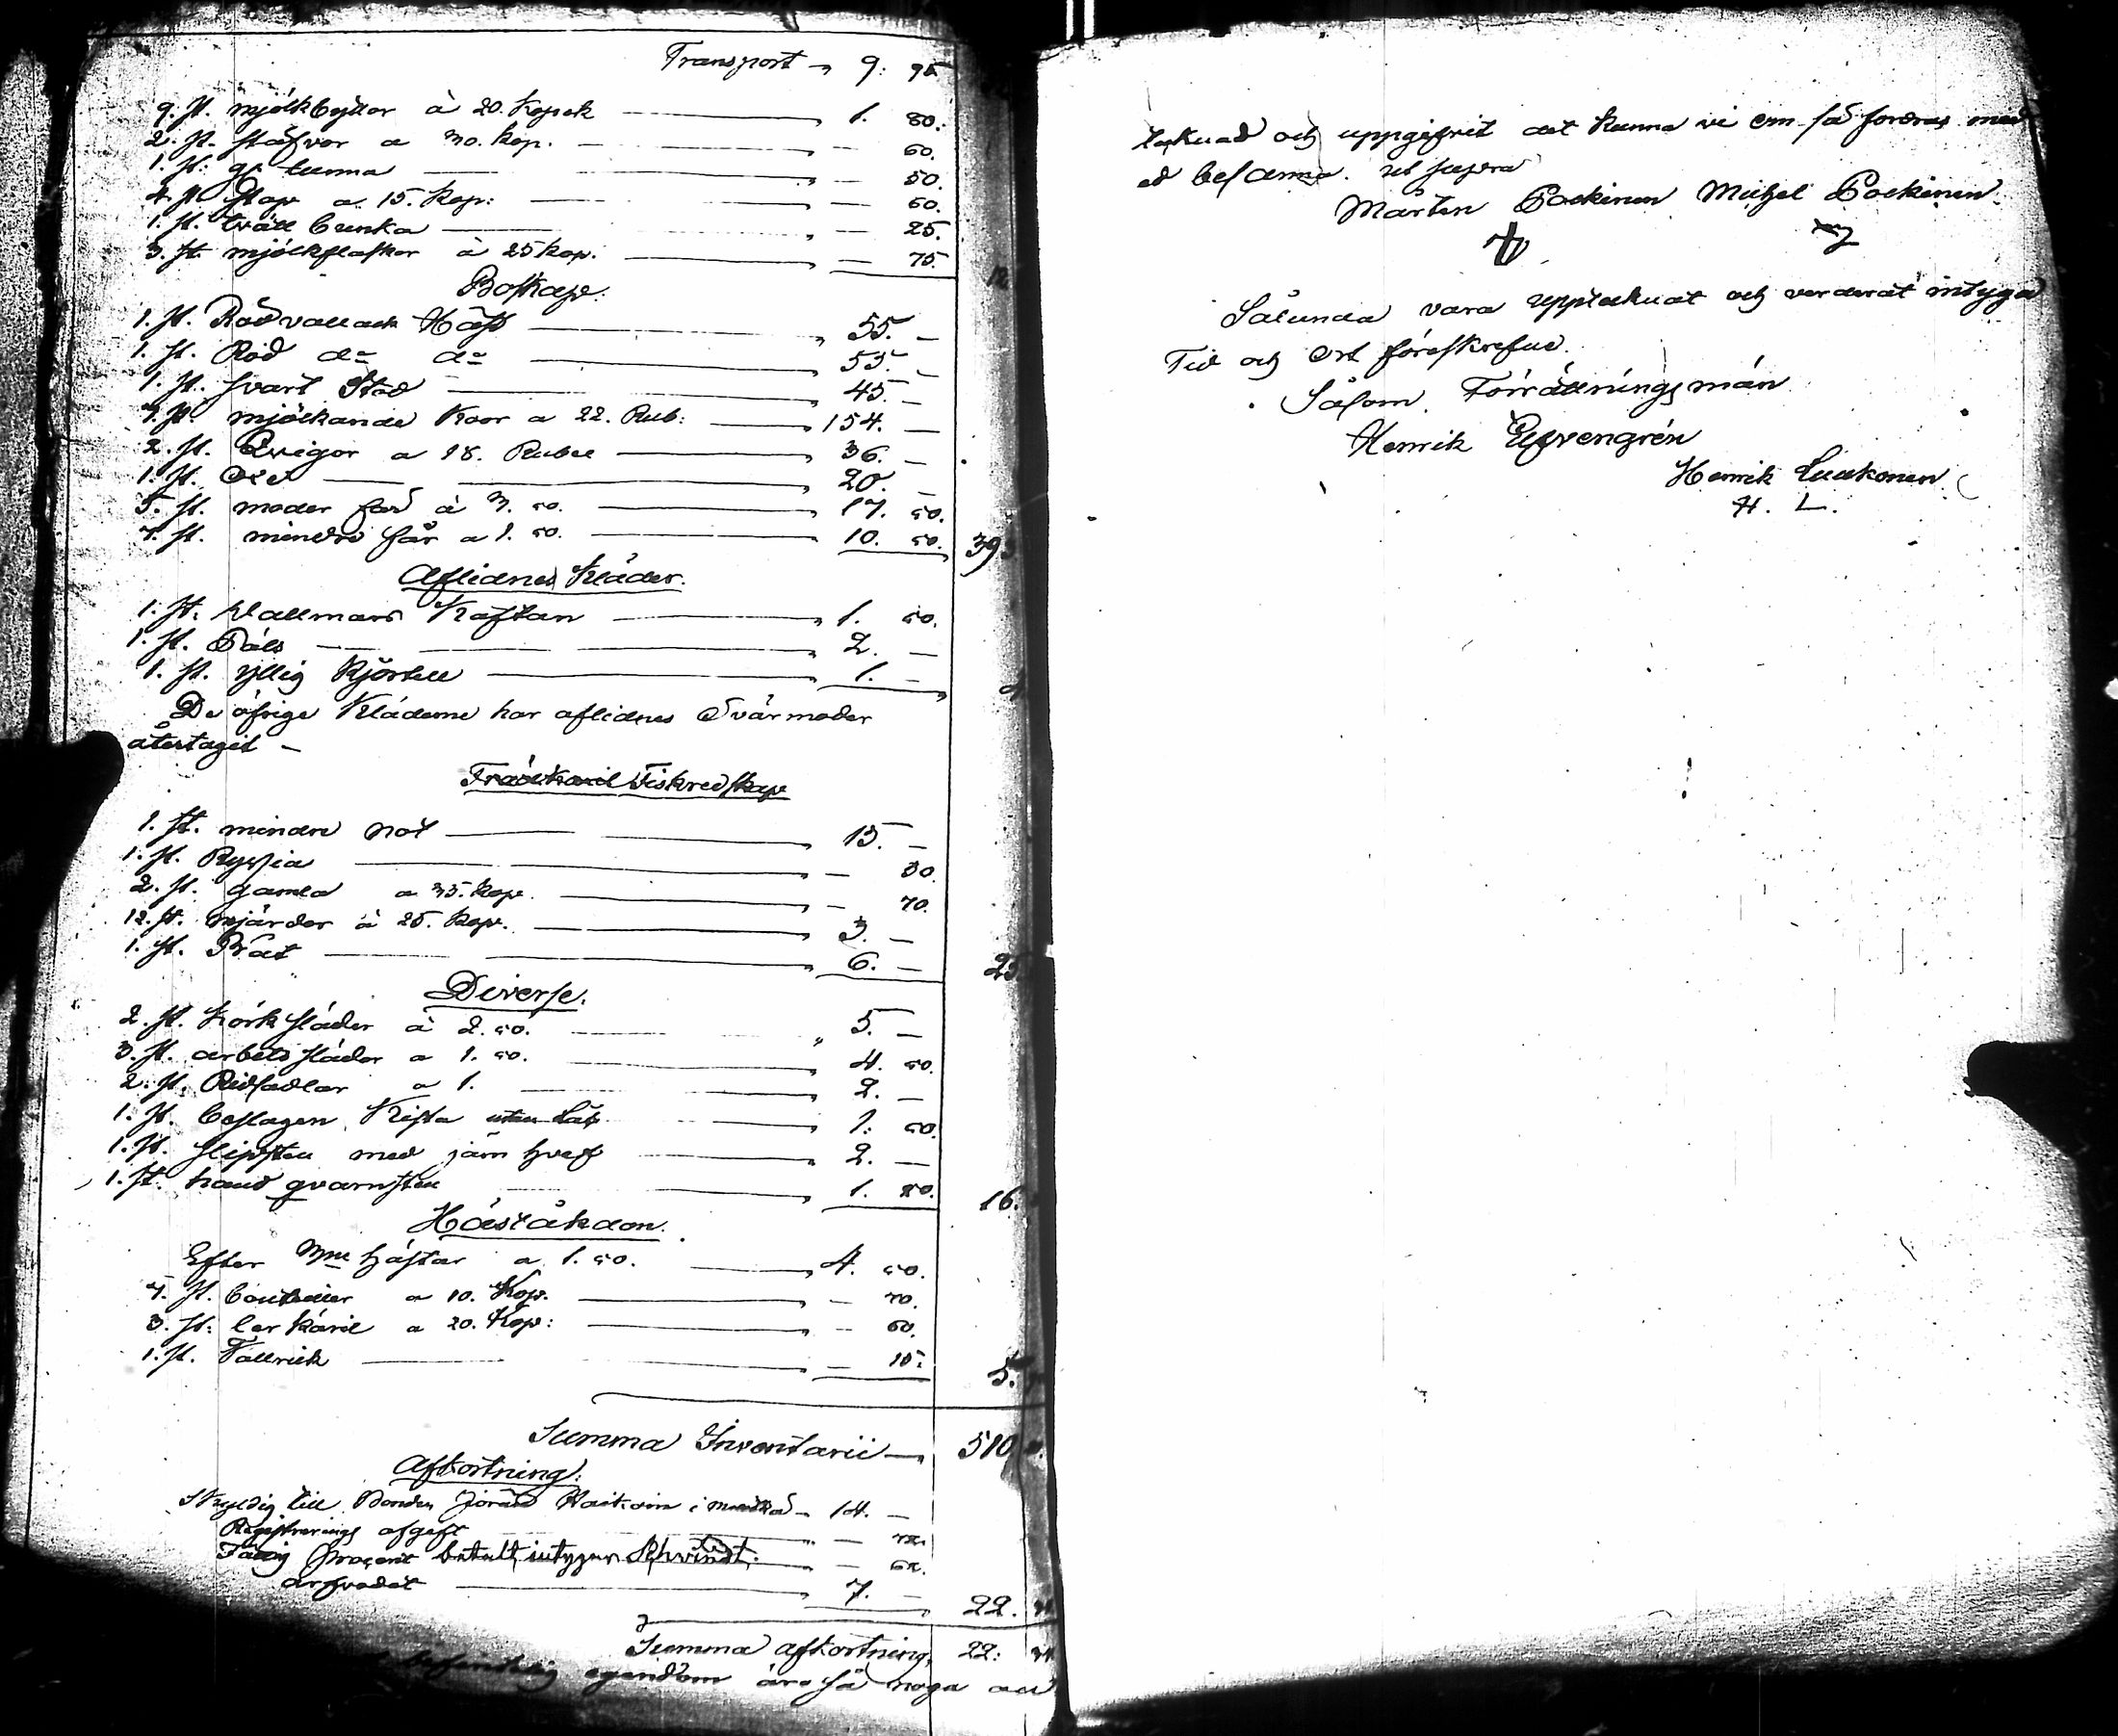 Transport 9: 95
9. st. mjölkbyttor à 20. Kopek 1. 80.
2. st. stäfvor a 30. Kop. — 60.
1. st. gl. tunna — 50.
4. st. Stop a 15. Kop: — 60.
1. st. tvätt bunka — 25.
3. st. mjölkflaskor à 25 kop. — 75. 12
Boskap.
1. st. Röd vallack Häst 55. —
1. st. Röd do do 55. —
1. st. svart Stod 45. —
7. st. mjölkande Koor a 22. Rub: 154. —
2. st. Qvigor a 18. Rubel 36. —
1. st. 20. —
5. st. moder får à 3. 50. 17. 50.
7. st. mindre får a 1. 50. 10. 50. 393
Aflidnes Kläder.
1. st. Vallmans Kaftan 1. 50.
1. st. Päls 2. —
1. st. yllig Kjortell 1. —
De öfrige Kläderne har aflidnes Svärmoder
återtagit —
Fiskredskap
1. st. mindre not 15. —
1. st. Ryssia — 50.
2. st. gamla a 35. kop. — 70.
12. st. mjärdor à 25. kop. 3. —
1. st. Båt 6. — 25
Diverse.
2. st. Körk släder à 2. 50. 5. —
3. st. arbets släder a 1. 50. 4. 50.
2. st. Ridsadlar a 1. 2. —
1. st. beslagen Kista utan Lås 1. 50.
1. st. slipsten med järn hvef 2. —
1. st. hand qvarnsten 1. 50. 16.
Häståkdon.
Efter hästar a 1. 50. 4. 50.
7. st. bouteiller a 10. Kop. — 70.
3. st. lerkäril a 20. Kop: — 60.
1. st. Tallrick — 10. 5.
Summa Inventarii 510
Afkortning:
Skyldig till Bonden Jöran i 14. —
Registrerings afgift —
Fattig procent betalt, intygar Schvindt. —
arfvodet 7. — 22.
Summa afkortning, 22:
egendom är så noga
tecknad och uppgifvit det kunna vi om så fordras med
ed besanna. ut supra
Mårten Pockinen Michel Pockinen
Sålunda vara upptecknat och värderat intyga
Tid och Ort föreskrefne.
Såsom Förrättningsmän
Henrik
Henrik Luukonen
H. L.